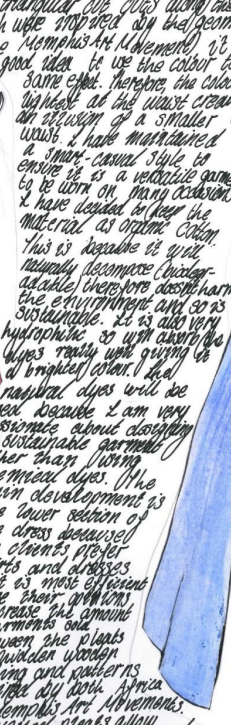 triangular cut outs along the
h were inspired by the geom
e Memphis Art Movement, it
good idea to use the colour t
same effect. Therefore, the colou
lightest at the waist crea
an illusion of a smaller
waist. I have maintained
a smart-casual style to
ensure it is a versatile garme
to be worn on many occasion
I have decided to keep the
material as organic cotton.
This is because it will
naturally decompose (biodegr-
adable) therefore doesn't harm
the environment and so is
sustainable. It is also very
hydrophilic so will absorb the
dyes really well giving a
brighter colour. The
natural dyes will be
ed because I am very
ssionate about designing
sustainable garments
her than using
emical dyes. The
in development is
e lower section of
dress because
clients prefer
rts and dresses
it is most efficient
e their opinions
crease the amount
arments sold.
ween the pleats
hidden wooden
ing and patterns
ired by both Africa
Memphis Art Movements.